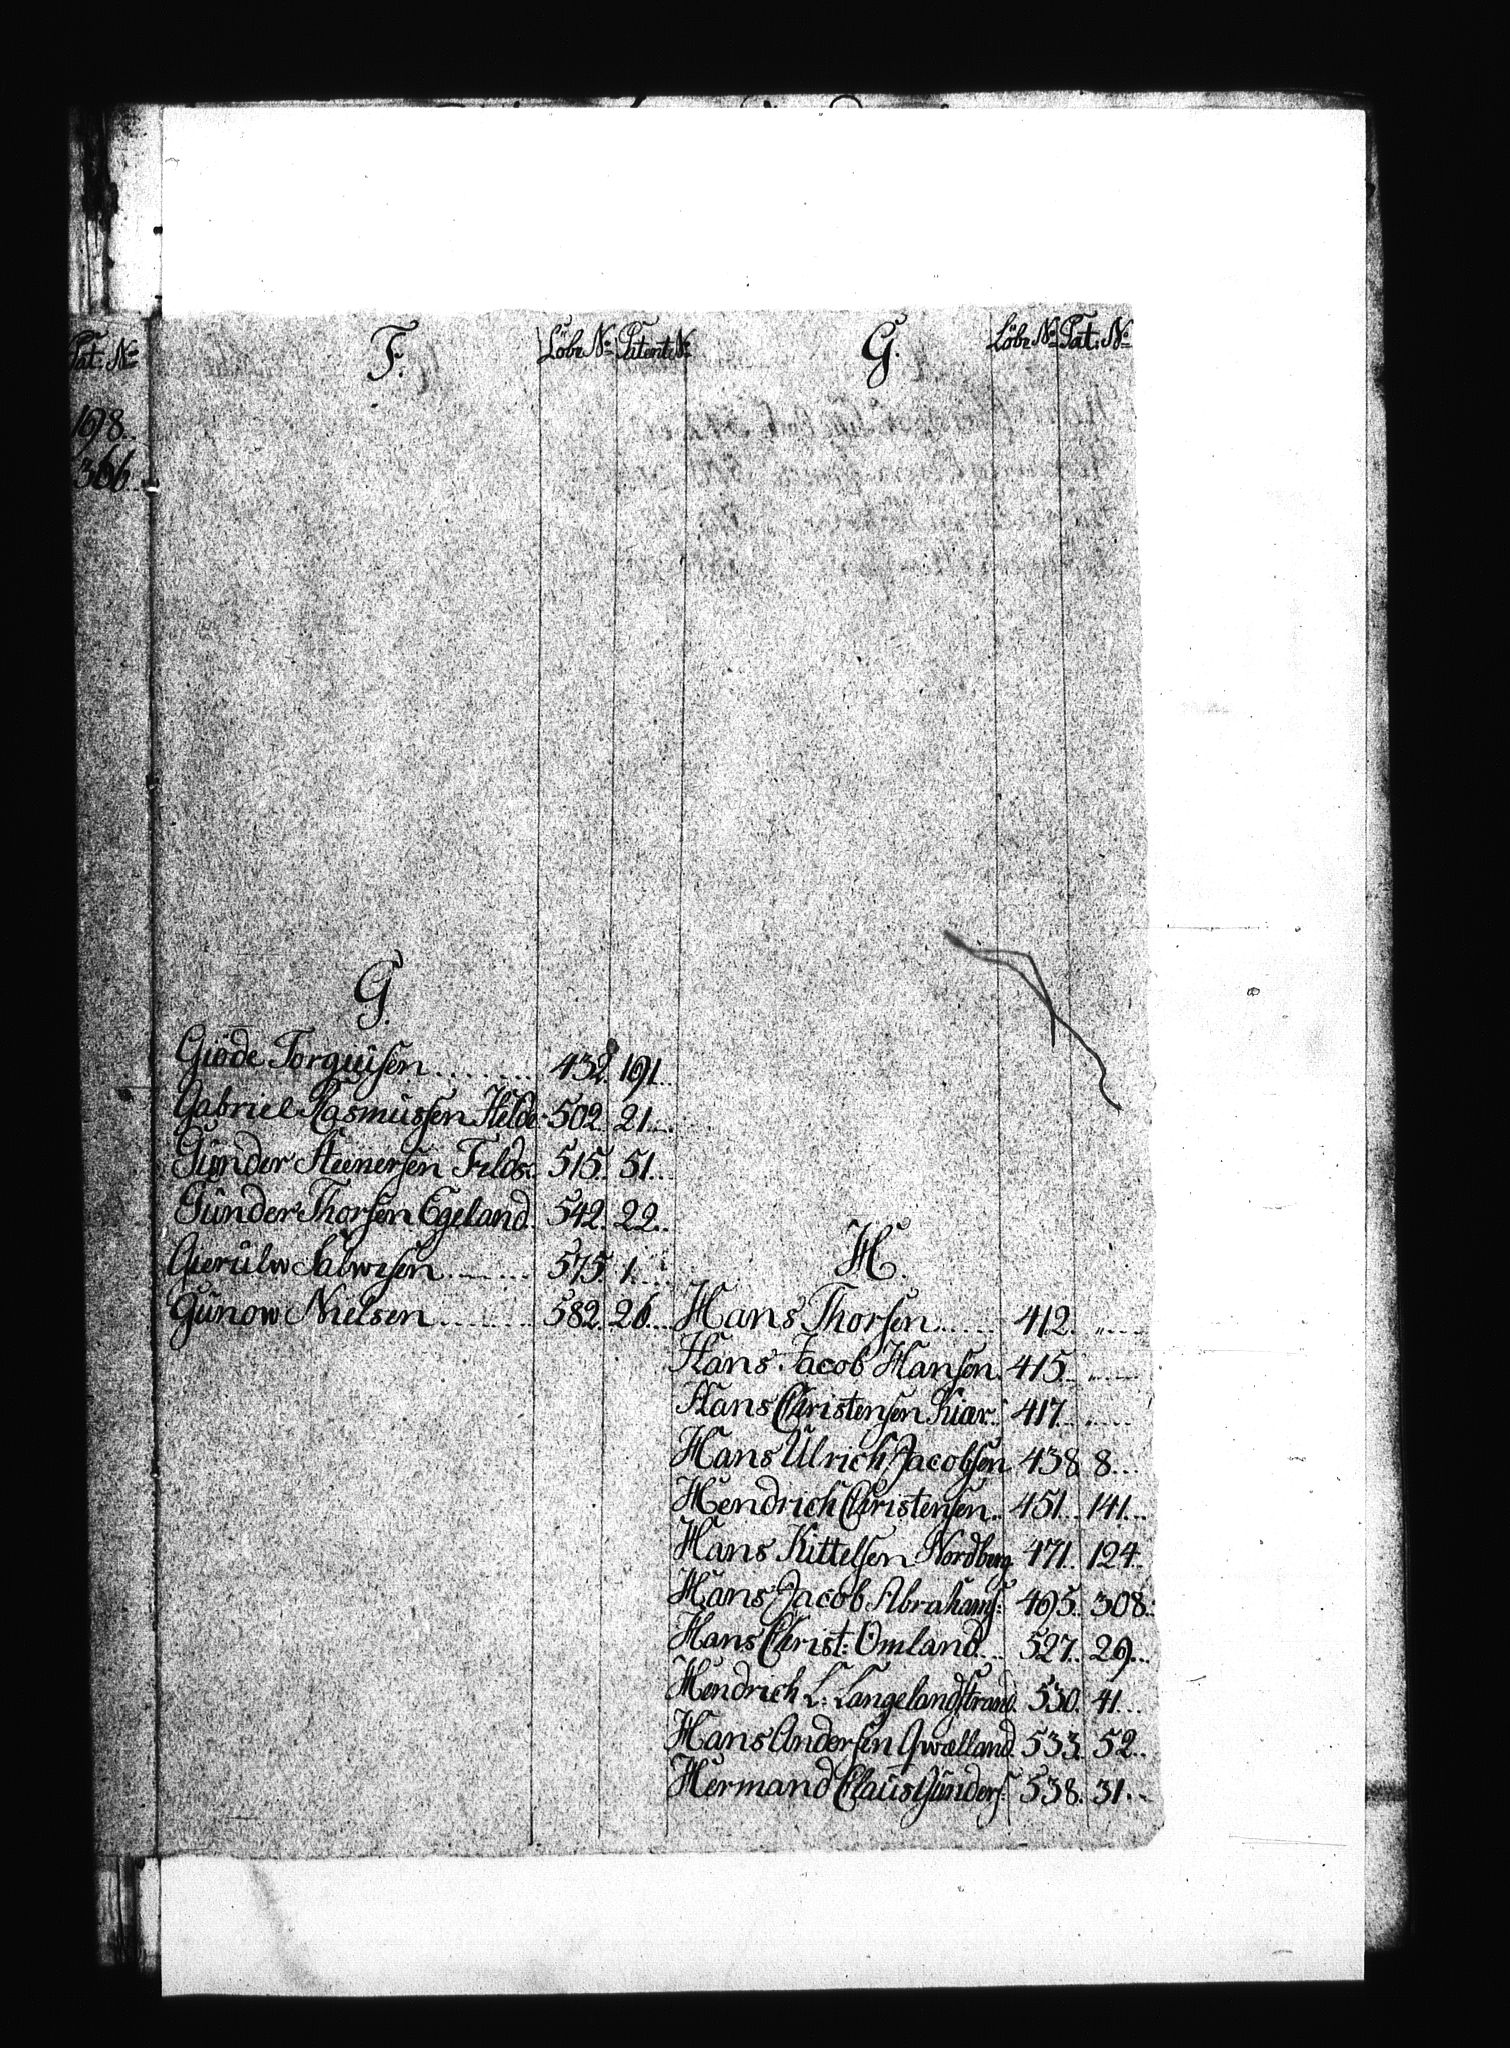 Pat: No
198..
366..
F. Löbe No Patent: No
G.
Giöde Torguüsen ........ 432. 191..
Gabriel Rasmüssen Helde 502. 21....
Günder Steenersen Felds: 515. 51...
Günder Thorsen Egeland. 542. 22..
Gierülw Salwesen ........ 575. 1....
Günow Nielsen ........ 582. 26...
G. Löbe No Pat: No
H.
Hans Thorsen ..... 412. „....
Hans Jacob Hansen. 415.. „....
Hans Christensen Kiær: 417.. „....
Hans Ulrich Jacobsen 438 8...
Hendrich Christensen.. 451.. 141...
Hans Kittelsen Nordberg 471. 124.
Hans Jacob Abrahams: 495. 308.
Hans Christ: Omland ... 527. 29...
Hendrich L: Langelandstrand. 530. 41...
Hans Andersen Qwælland. 533. 52..
Hermand Claus Gunders: 538. 31..